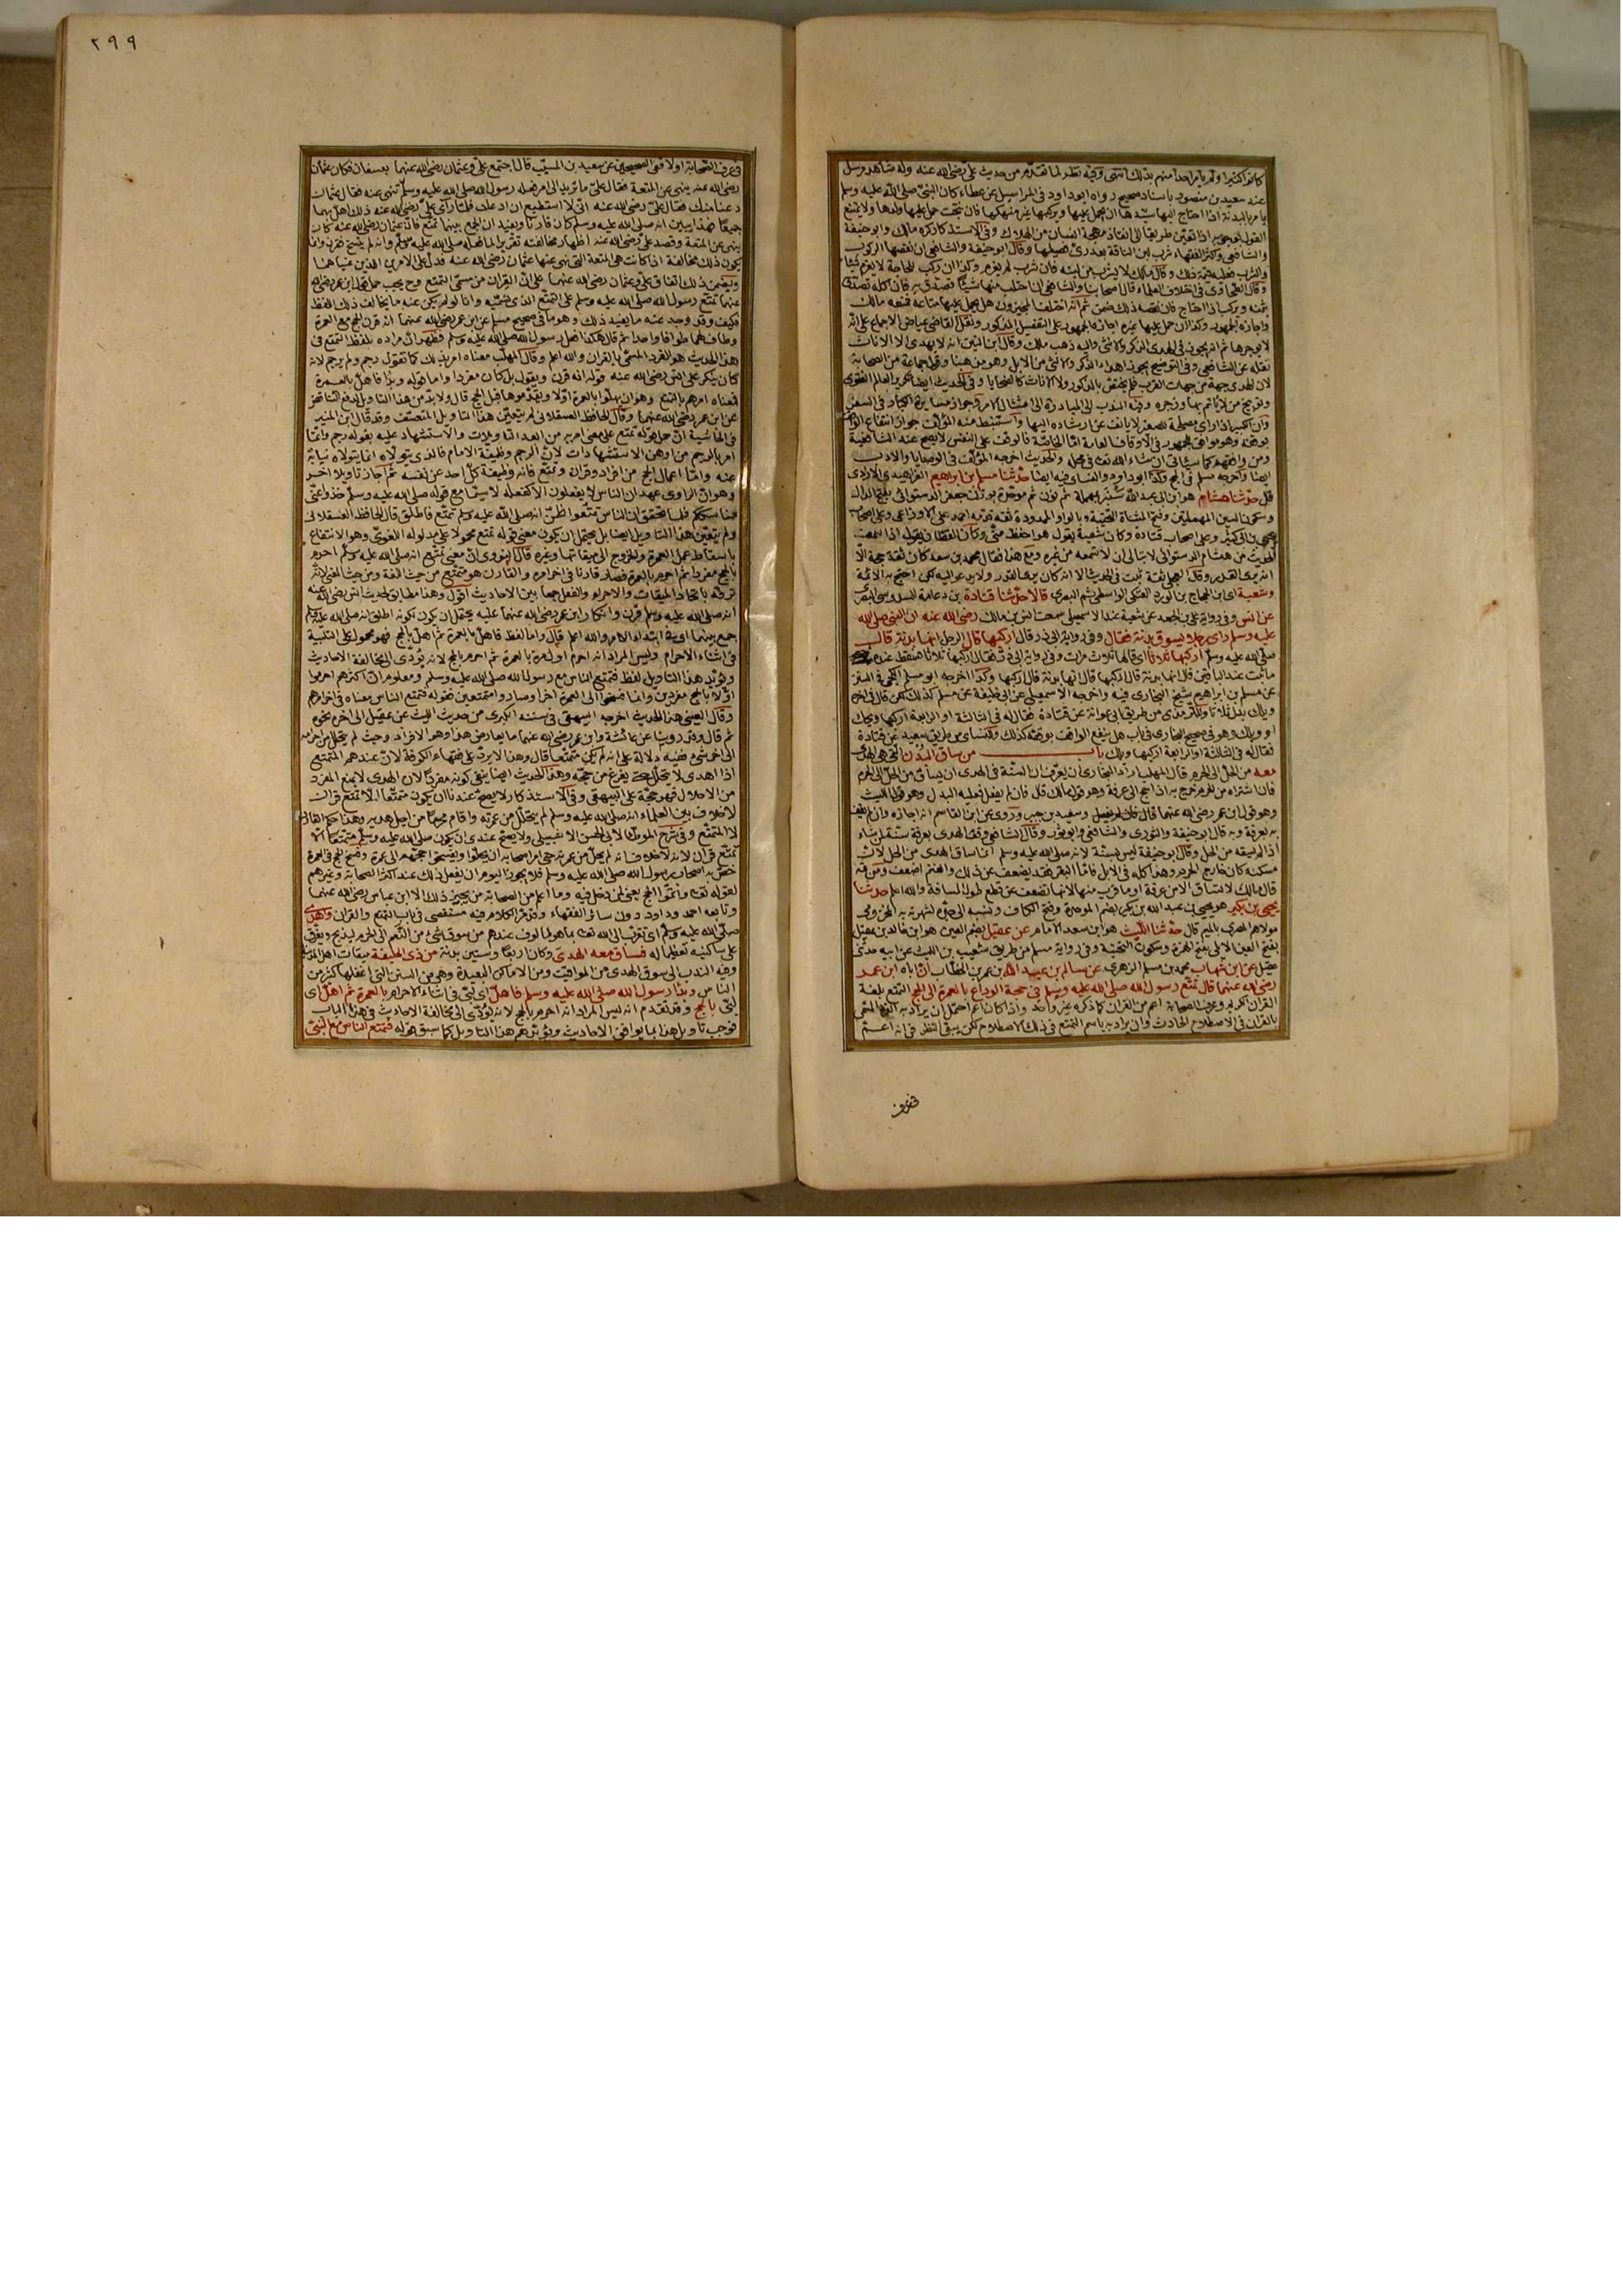 كانوا كثيرا ولم يأمر احدا منهم بذلك انتهى وفيه نظر لما تقدم من حديث علي رضي الله عنه وله شاهد مرسل
عند سعيد بن منصور باسناد صحيح رواه ابو داود في المراسيل عن عطاء كان النبي صلى الله عليه وسلم
يأمر بالبدنة اذا احتاج اليها سيدها ان يحمل عليها ويركبها غير منهكها فان نتجت حمل عليها ولدها ولا يمتنع
القول بوجوبه اذا تعين طريقا الى انقاذ مهجة انسان من الهلاك وفي الاستذكار كره مالك وابو حنيفة
والشافعي واكثر الفقهاء شرب لبن الناقة بعد ري فصيلها وقال ابو حنيفة والشافعي ان نقصها الركوب
والشرب فعليه قيمة ذلك وقال مالك لا يشرب من لبنه فان شرب لم يغرم وكذا ان ركب للحاجة لا يغرم شيئا
وقال الطحاوي في اختلاف العلماء قال اصحابنا والشافعي ان احتلب منها شيئا تصدق به فان اكله تصدق
بثمنه ويركب اذا احتاج فان نقصه ذلك ضمن ثم انه اختلف المجيزون هل يحمل عليها متاعه فمنعه مالك
واجازه الجمهور وكذا ان حمل عليها غيره اجازه الجمهور على التفصيل المذكور ونقل القاضي عياض الاجماع على انه
لا يوجرها ثم انه يجوز في الهدي الذكر والانثى واليه ذهب مالك وقال ابن التين انه لا يهدى الا الاناث
نقله عن الشافعي وفي التوضيح يجوز اهداء الذكر والانثى من الابل وهو مذهبنا وقول جماعة من الصحابة
لان الهدي جهة من جهات القرب فلم يختص بالذكور ولا الاناث كالضحايا وفي الحديث ايضا تكرير العالم الفتوى
وتوبيخ من لا يأتم بها وزجره وفيه الندب الى المبادرة الى امتثال الامر وجواز مسايرة الكبار في السفر
وان الكبير اذا راى مصلحة للصغير لا يانف عن ارشاده اليها واستنبط منه المؤلف جواز انتفاع الواقف
بوقفه وهو موافق للجمهور في الاوقاف العامة اما الخاصة فالوقف على النفس لا يصح عند الشافعية
ومن وافقهم كما سيأتي ان شاء الله تعالى في محله والحديث اخرجه المؤلف في الوصايا والادب
ايضا واخرجه مسلم في الحج وكذا ابو داود والنسائي فيه ايضا حدثنا مسلم بن ابراهيم الفراهيدي الازدي
قال حدثنا هشام هو ابن ابي عبد الله سنبر بمهملة ثم نون ثم موحدة بوزن جعفر الدستوائي بفتح الدال
وسكون السين المهملتين وفتح المثناة الفوقية وبالواو الممدودة ثقة قدمه احمد على الاوزاعي وعلى اصحاب
يحيى بن ابي كثير وعلى اصحاب قتادة وكان شعبة يقول هو احفظ مني وكان القطان يقول اذا سمعت
الحديث من هشام الدستوائي لا تبالي ان لا تسمعه من غيره ومع هذا فقال محمد بن سعد كان ثقة حجة الا
انه يرى القدر وقال العجلي ثقة ثبت في الحديث الا انه كان يرى القدر ولا يدعو اليه لكن احتج به الائمة
وشعبة اي ابن الحجاج بن الورد العتكي الواسطي ثم البصري قالا حدثنا قتادة بن دعامة السدوسي البصري
عن انس وفي رواية علي بن الجعد عن شعبة عند الاسمعيلي سمعت انس بن مالك رضي الله عنه ان النبي صلى الله
عليه وسلم راى رجلا يسوق بدنة فقال وفي رواية ابي ذر قال اركبها قال الرجل انها بدنة قال
صلى الله عليه وسلم اركبها ثلاثا اي قالها ثلاث مرات وفي رواية ابي ذر فقال اركبها ثلاثا فسقط عنده
ما ثبت عند الباقين قال انها بدنة قال اركبها قال انها بدنة قال اركبها وكذا اخرجه ابو مسلم الكجي في السنن
عن مسلم بن ابراهيم شيخ البخاري فيه واخرجه الاسمعيلي عن ابي خليفة عن مسلم كذلك لكن قال في اخره
ويلك بدل ثلاثا وللترمذي من طريق ابي عوانة عن قتادة فقال له في الثالثة او الرابعة اركبها ويحك
او ويلك وهو في صحيح البخاري في باب هل ينتفع الواقف بوقفه كذلك وللنسائي من طريق سعيد عن قتادة
فقال له في الثالثة او الرابعة اركبها ويلك باب من ساق البدن التي هي الهدي
معه من الحل الى الحرم قال المهلب اراد البخاري ان يعرف ان السنة في الهدي ان يساق من الحل الى الحرم
فان اشتراه من الحرم خرج به اذا حج الى عرفة وهو قول مالك قال فان لم يفعل فعليه البدل وهو قول الليث
وهو قول ابن عمر رضي الله عنهما وسعيد بن جبير وروي عن ابن القاسم انه اجازه وان لم يقف
به بعرفة وبه قال ابو حنيفة والثوري والشافعي وابو ثور وقال الشافعي وقف الهدي بعرفة سنة لمن شاء
اذا لم يسقه من الحل وقال ابو حنيفة ليس بسنة لانه صلى الله عليه وسلم انما ساق الهدي من الحل لان
مسكنه كان خارج الحرم وهذا كله في الابل فاما البقر فقد يضعف عن ذلك والغنم اضعف ومن ثمه
قال مالك لا تساق الا من عرفة او ما قرب منها لانها تضعف عن قطع طول المسافة والله اعلم حدثنا
يحيى بن بكير هو يحيى بن عبد الله بن بكير بضم الموحدة وفتح الكاف ونسبه الى جده لشهرته به المخزومي
مولاهم المصري بالميم قال حدثنا الليث هو ابن سعد الامام عن عقيل بضم العين هو ابن خالد بن عقيل
بفتح العين الايلي بفتح الهمزة وسكون التحتية وفي رواية مسلم من طريق شعيب بن الليث عن ابيه حدثني
عقيل عن ابن شهاب محمد بن مسلم الزهري عن سالم بن عبد الله بن عمر بن الخطاب ان اباه ابن عمر
رضي الله عنهما قال تمتع رسول الله صلى الله عليه وسلم في حجة الوداع بالعمرة الى الحج التمتع بلغة
القران الكريم وعرف الصحابة اعم من القران كما ذكره غير واحد واذا كان اعم احتمل ان يراد به الفرد المسمى
بالقران في الاصطلاح الحادث وان يراد به باسم التمتع في ذلك الاصطلاح لكن يبقى النظر في انه اعم
في عرف
٢٩٩
في عرف الصحابة اولا ففي الصحيحين عن سعيد بن المسيب قال اجتمع علي وعثمان رضي الله عنهما بعسفان فكان عثمان
رضي الله عنه ينهى عن المتعة فقال علي ما تريد الى امر فعله رسول الله صلى الله عليه وسلم تنهى عنه فقال عثمان
دعنا منك فقال علي رضي الله عنه اني لا استطيع ان ادعك فلما راى علي رضي الله عنه ذلك اهل بهما
جميعا فهذا يبين انه صلى الله عليه وسلم كان قارنا ويفيد ان الجمع بينهما تمتع فان عثمان رضي الله عنه كان
ينهى عن المتعة وقصد علي رضي الله عنه اظهار مخالفته تقريرا لما فعله صلى الله عليه وسلم وانه لم ينسخ فقرن وانما
يكون ذلك مخالفة اذا كانت هي المتعة التي نهى عنها عثمان رضي الله عنه فدل على الامرين اللذين عنياهما
ويتضمن ذلك اتفاق علي وعثمان رضي الله عنهما على ان القران من مسمى التمتع وح يجب حمل قول ابن عمر رضي الله
عنهما تمتع رسول الله صلى الله عليه وسلم على التمتع الذي نسميه وانا لو لم يكن عنه ما يخالف ذلك اللفظ
فكيف وقد وجد عنه ما يفيد ذلك وهو ما في صحيح مسلم عن ابن عمر رضي الله عنهما انه قرن الحج مع العمرة
وطاف لهما طوافا واحدا ثم قال هكذا فعل رسول الله صلى الله عليه وسلم فظهر ان مراده بلفظ التمتع في
هذا الحديث هو الفرد المسمى بالقران والله اعلم وقال المهلب معناه امر بذلك كما تقول رجم ولم يرجم لانه
كان ينكر على انس رضي الله عنه قوله انه قرن ويقول بل كان مفردا واما قوله وبدأ فاهل بالعمرة
فمعناه امرهم بالتمتع وهو ان يهلوا بالعمرة اولا ويقدموها قبل الحج قال ولا بد من هذا التاويل لدفع التناقض
عن ابن عمر رضي الله عنهما وقال الحافظ العسقلاني لم يتعين هذا التاويل المتعسف وقد قال ابن المنير
في الحاشية ان حمل قوله تمتع على معنى امر به من ابعد التاويلات والاستشهاد عليه بقوله رجم وانما
امر بالرجم من اوهن الاستشهادات لان الرجم وظيفة الامام فالذي يتولاه انما يتولاه نيابة
عنه واما اعمال الحج من افراد وقران وتمتع فانه وظيفة كل احد عن نفسه ثم اجاز تاويلا اخر
وهو ان الراوي عهد ان الناس لا يفعلون الا كفعله لا سيما مع قوله صلى الله عليه وسلم خذوا عني
مناسككم فلما تحقق ان الناس تمتعوا ظن انه صلى الله عليه وسلم تمتع فاطلق قال الحافظ العسقلاني
ولم يتعين هذا التاويل ايضا بل يحتمل ان يكون معنى قوله تمتع محمولا على مدلوله اللغوي وهو الانتفاع
باسقاط عمل العمرة والخروج الى ميقاتها وغيره قال النووي ان معنى تمتع انه صلى الله عليه وسلم احرم
بالحج مفردا ثم احرم بالعمرة فصار قارنا في اخر امره والقارن هو متمتع من حيث اللغة ومن حيث المعنى لانه
ترفه باتحاد الميقات والاحرام والفعل جمعا بين الاحاديث اقول وهذا مطابق لحديث انس رضي الله عنه
انه صلى الله عليه وسلم قرن وانكار ابن عمر رضي الله عنهما عليه يحتمل ان يكون لكونه اطلق انه صلى الله عليه وسلم
جمع بينهما اي في ابتداء الامر والله اعلم قال واما لفظ فاهل بالعمرة ثم اهل بالحج فهو محمول على التلبية
في اثناء الاحرام وليس المراد انه احرم اول مرة بالعمرة ثم احرم بالحج لانه يؤدي الى مخالفة الاحاديث
ويؤيد هذا التاويل لفظ فتمتع الناس مع رسول الله صلى الله عليه وسلم ومعلوم ان اكثرهم احرموا
اولا بالحج مفردين وانما فسخوا الى العمرة اخرا وصاروا متمتعين فقوله فتمتع الناس معناه في اخر امرهم
وقال العيني هذا الحديث اخرجه البيهقي في سننه الكبرى من حديث الليث عن عقيل الى اخره نحوه
ثم قال وقد روينا عن عائشة وابن عمر رضي الله عنهما ما يعارض هذا وهو الافراد وحيث لم يتحلل من احرامه
الى اخر شيء ففيه دلالة على انه لم يكن متمتعا قال وهذا لا يرد على فقهاء الكوفة لان عندهم المتمتع
اذا اهدى لا يتحلل حتى يفرغ من حجه وهذا الحديث ايضا ينفي كونه مفردا لان الهدي لا يمنع المفرد
من الاحلال فهو حجة على البيهقي وفي الاستذكار لا يصح عندنا ان يكون متمتعا الا تمتع قران
لا خلاف بين العلماء انه صلى الله عليه وسلم لم يتحلل من عمرته واقام محرما من اجل هديه وهذا حكم القارن
لا المتمتع وفي شرح الموطا لابي الحسن الاشبيلي ولا يصح عندي ان يكون صلى الله عليه وسلم متمتعا الا
تمتع قران لانه لا خلاف انه لم يحل من عمرته حتى امر اصحابه ان يحلوا ويفسخوا حجهم الى عمرة وفسخ الحج في العمرة
خص به اصحاب رسول الله صلى الله عليه وسلم فلا يجوز اليوم ان يفعل ذلك عند اكثر الصحابة وغيرهم
لقوله تعالى واتموا الحج يعني لمن دخل فيه وما اعلم من الصحابة من يجيز ذلك الا ابن عباس رضي الله عنهما
وتابعه احمد وداود دون سائر الفقهاء وقد مر الكلام فيه مستقصى في باب التمتع والقران واهدى
صلى الله عليه وسلم اي تقرب الى الله تعالى بما هو مالوف عندهم من سوق شيء من النعم الى الحرم ليذبح ويفرق
على مساكينه تعظيما له فساق معه الهدي وكان اربعا وستين بدنة من ذي الحليفة ميقات اهل المدينة
وفيه الندب الى سوق الهدي من المواقيت ومن الاماكن البعيدة وهو من السنن التي اغفلها كثير من
الناس وبدأ رسول الله صلى الله عليه وسلم فاهل اي لبى في اثناء الاحرام بالعمرة ثم اهل اي
لبى بالحج وقد تقدم انه ليس المراد انه احرم بالحج لانه يؤدي الى مخالفة الاحاديث في هذا الباب
فوجب تاويل هذا بما يوافق الاحاديث ويؤيد هذا التاويل كما سبق قوله فتمتع الناس مع النبي